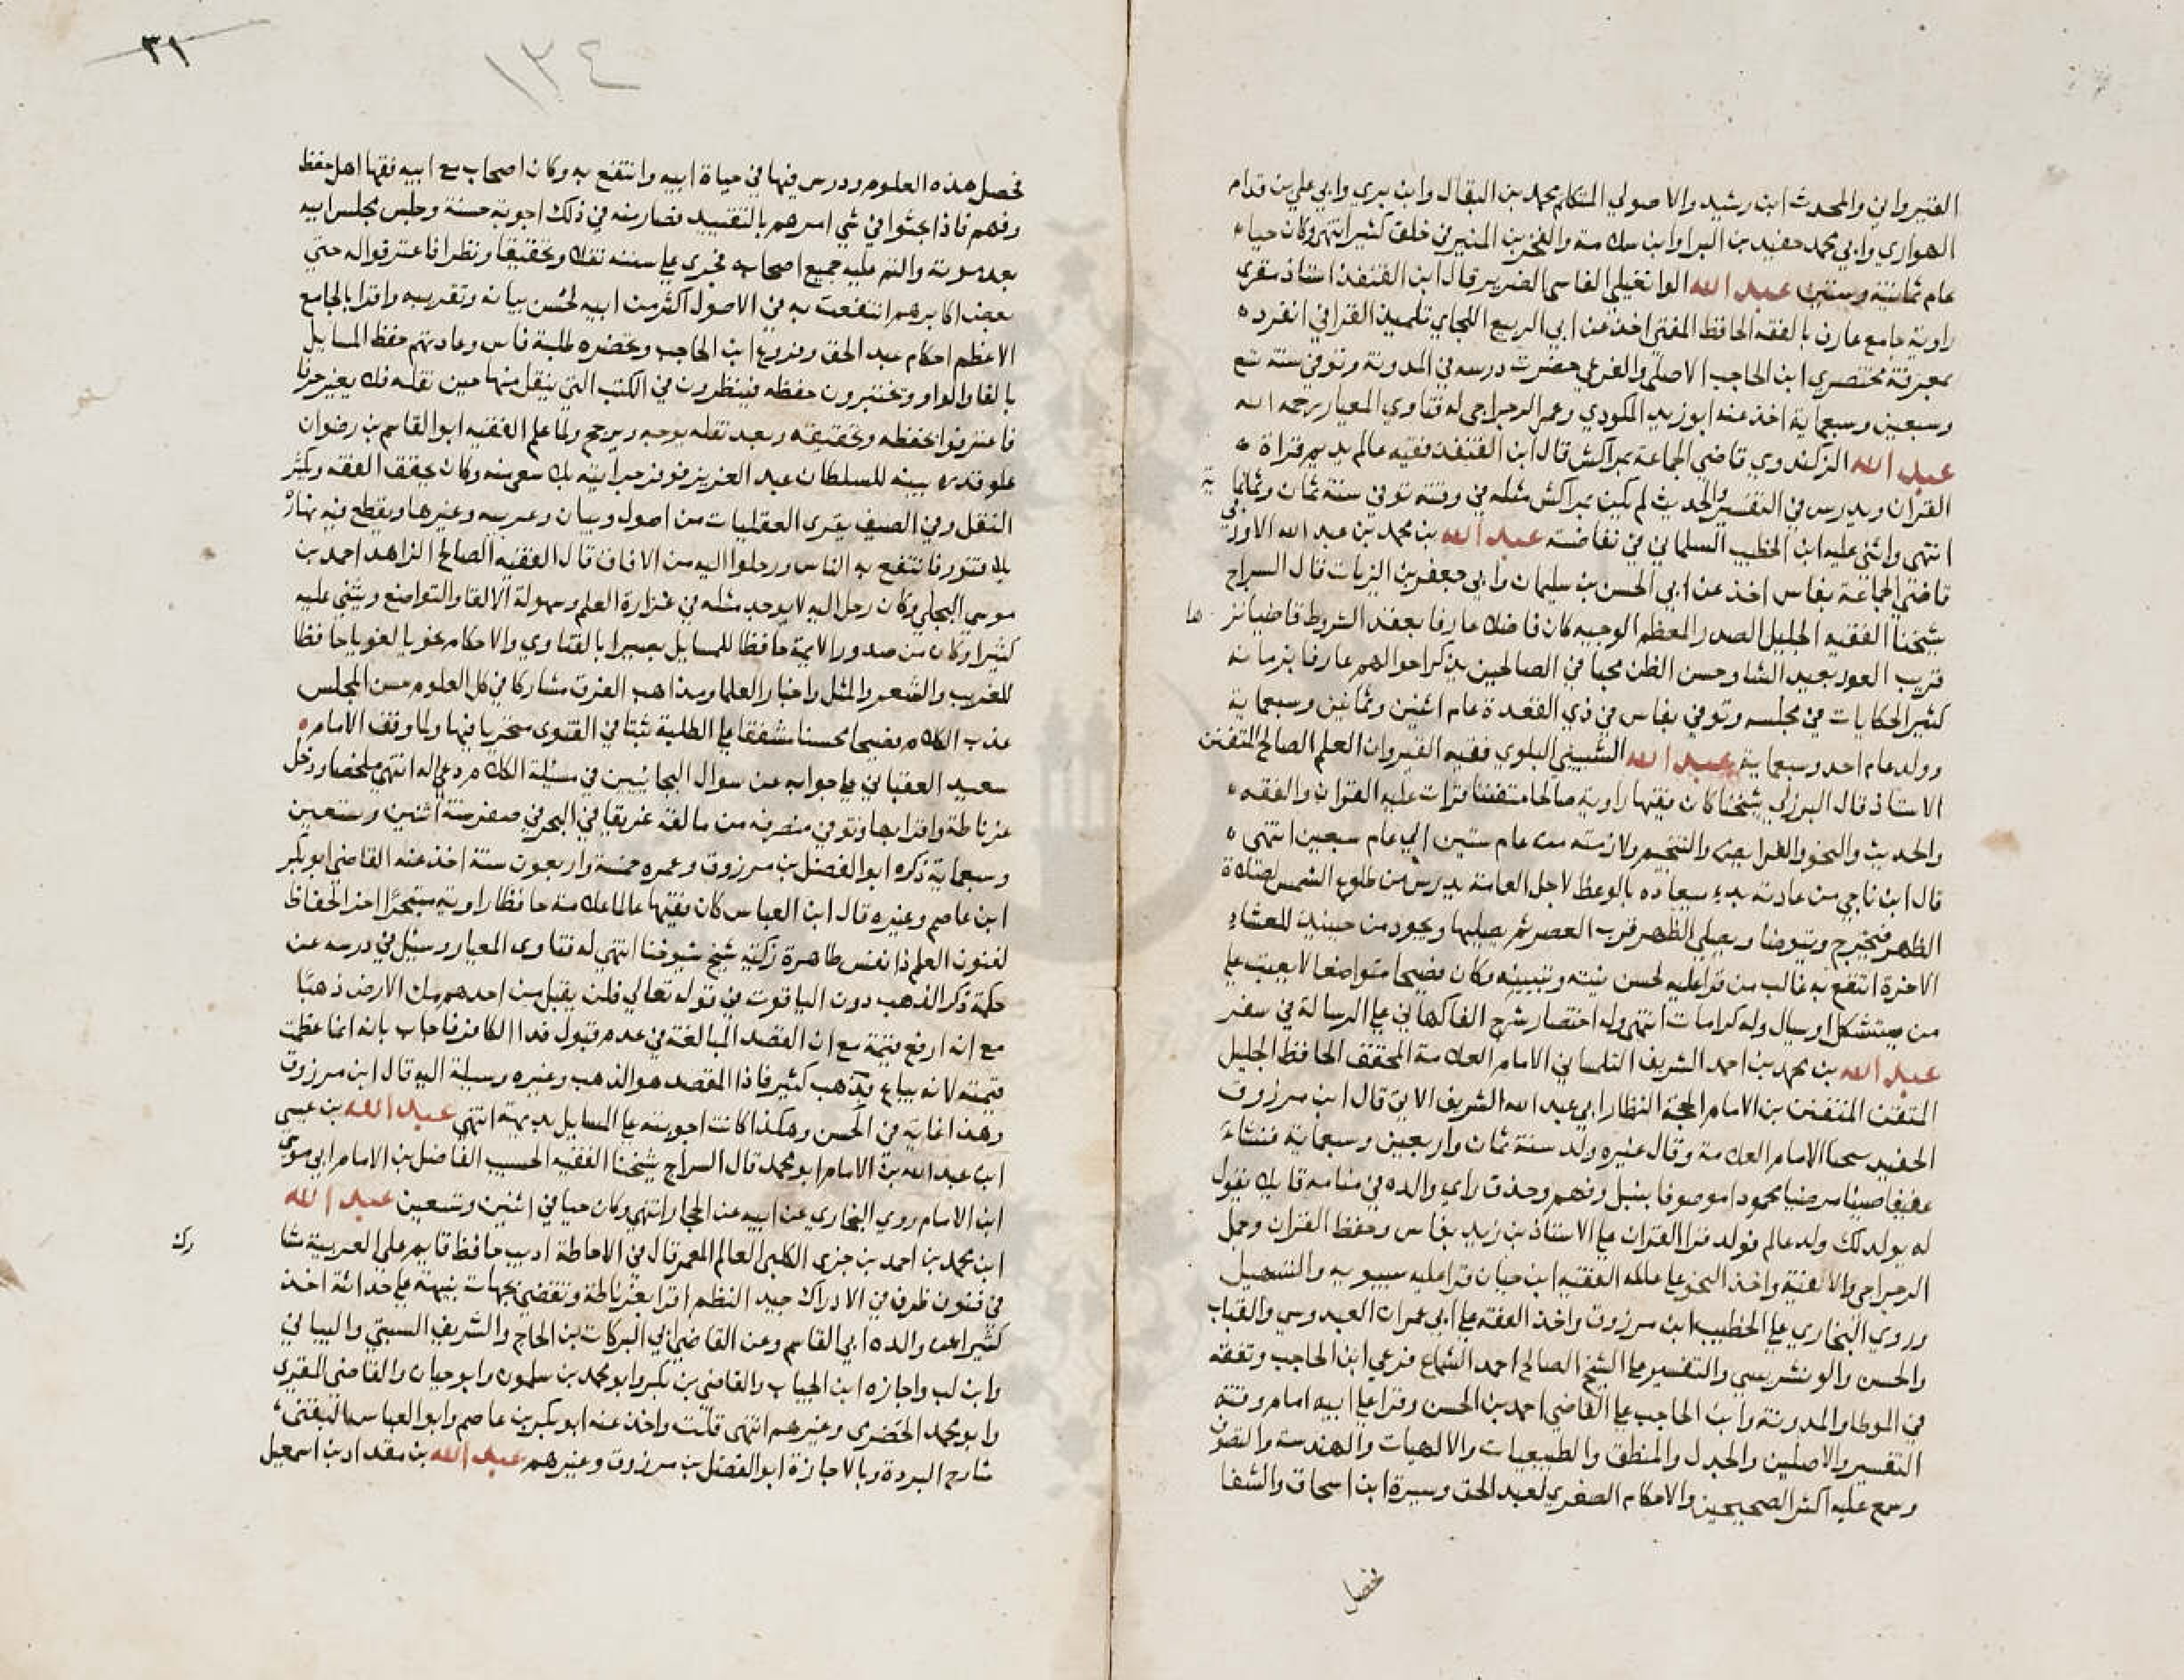 القيرواني والمحدث ابن رشيد والاصولي المتكلم محمد بن البقال وابن بري وابي علي بن قدام
الهواري وابي محمد حفيد بن البرا وابن سلامة والفخر بن المنير في خلق كثير انتهى وكان حيا
عام ثمانية وستين عبد الله الوانغيلي الفاسي الضرير قال ابن القنفذ استاذ مقري
راوية جامع عارف بالفقه الحافظ المفتي اخذ عن ابي الربيع اللجاي تلميذ القرافي انفرد
بمعرفة مختصري ابن الحاجب الاصلي والفرعي حضرت درسه في المدونة وتوفي سنة تسع
وسبعين وسبعماية اخذ عنه ابوزيد المكودي وعمر الرجراجي له فتاوي المعيار رحمه الله
عبد الله الزكندوي قاضي الجماعة بمراكش قال ابن القنفذ فقيه عالم يديم قراة
القران ويدرس في التفسير والحديث لم يكن بمراكش مثله في وقته توفي سنة ثمان وثمانماية
انتهى واثنى عليه ابن الخطيب السلماني في نفاضته عبد الله بن محمد بن عبد الله الاوربي
قاضي الجماعة بفاس اخذ عن ابي الحسن بن سليمان وابي جعفر بن الزيات قال السراج
شيخنا الفقيه الجليل الصدر المعظم الوجيه كان فاضلا عارفا بعقد الشروط قاضيا نزها
قريب العود بعيد الشاو حسن الظن محبا في الصالحين يذكر احوالهم عارفا بزمانه
كثير الحكايات في مجلسه وتوفي بفاس في ذي القعدة عام اثنين وثمانين وسبعماية
وولد عام احد وسبعماية عبد الله الشبيبي البلوي فقيه القيروان العلم الصالح المتفنن
الاستاذ قال البرزلي شيخنا كان فقيها راوية صالحا متفننا قرات عليه القران والفقه
والحديث والنحو والفرايض والتنجيم ولازمته من عام ستين الي عام سبعين انتهى
قال ابن ناجي من عادته بدء ميعاده بالوعظ لاجل العامة يدرس من طلوع الشمس لصلاة
الظهر فيخرج ويتوضا ويصلي الظهر قرب العصر ثم يصليها ويعود من حينئذ للعشاء
الاخرة انتفع به غالب من قرا عليه لحسن نيته وتبيينه وكان فصيحا متواضعا لا يعيب علي
من يستشكل او يسال وله كرامات انتهى وله اختصار شرح الفاكهاني علي الرسالة في سفر
عبد الله بن محمد بن احمد الشريف التلمساني الامام العلامة المحقق الحافظ الجليل
المتقن المتفنن بن الامام الحجة النظار ابي عبد الله الشريف الاتي قال ابن مرزوق
الحفيد شيخنا الامام العلامة وقال غيره ولد سنة ثمان واربعين وسبعماية فنشاء
عفيفا صينا مرضيا محمودا موصوفا بنبل وفهم وحذق راي والده في منامه قايلا يقول
له يولد لك ولد عالم فولد قرا القران علي الاستاذ بن زيد بفاس وحفظ القران وجمل
الزجاجي والالفية واخذ النحو علي عالمه الفقيه ابن حيان قرا عليه سيبويه والتسهيل
وروي البخاري علي الخطيب ابن مرزوق واخذ الفقه علي ابي عمران العبدوسي والقباب
والحسن والونشريسي والتفسير علي الشيخ الصالح احمد الشماع فرعي ابن الحاجب وتفقه
في الموطا والمدونة وابن الحاجب علي القاضي احمد بن الحسن وقرا علي ابيه امام وقته
التفسير والاصلين والجدل والمنطق والطبيعيات والالهيات والهندسة والتصوف
وسمع عليه اكثر الصحيحين والاحكام الصغري لعبد الحق وسيرة ابن اسحاق والشفا
فحصل
٣١
١٣٤
فحصل هذه العلوم ودرس فيها في حياة ابيه وانتفع به وكان اصحاب مع ابيه فقها اهل حفظ
وفهم فاذا بحثوا في شي امرهم بالتقييد فصار منه في ذلك اجوبة حسنة وجلس مجلس ابيه
بعد موته والتم عليه جميع اصحابه فجري علي سننه نقلا وتحقيقا ونظرا فاعترفوا له حتي
بعض اكابرهم انتفعت به في الاصول اكثر من ابيه لحسن بيانه وتقريبه واقرا بالجامع
الاعظم احكام عبد الحق وفروع ابن الحاجب وتحضره طلبة فاس وعادتهم حفظ المسايل
بالفا والواو ويختبرون حفظه فينظرون في الكتب التي ينقل منها حين نقله فلا يغير حرفا
فاعترفوا بحفظه وتحقيقه وبعد نقله يوجه ويرجح ولما علم الفقيه ابو القاسم بن رضوان
علو قدره بينه للسلطان عبد العزيز فوفر جرايته بلا سعي منه وكان يحقق الفقه ويكثر
النقل وفي الصيف يقري العقليات من اصول وبيان وعربيه وغيرها ويقطع فيه نهاره
بلا فتور فانتفع به الناس ورحلوا اليه من الافاق قال الفقيه الصالح الزاهد احمد بن
موسي البجلي وكان رحل اليه لا يوجد مثله في غزارة العلم وسهولة الالقا والتواضع ويثني عليه
كثيرا وكان من صدور الايمة حافظا للمسايل بصيرا بالفتاوي والاحكام نحويا لغويا حافظا
للغريب والشعر والمثل واخبار العلما ومذاهب الفرق مشاركا في كل العلوم حسن المجلس
عذب الكلام فصيحا محسنا مشفقا علي الطلبة ثبتا في الفتوي متحريا فيها ولما وقف الامام
سعيد العقباني علي جوابه عن سوال البجائيين في مسئلة الكلام دعي له انتهي ملخصا ودخل
غرناطة واقرا بها وتوفي منصرفه من مالقة غريقا في البحر في صفر سنة اثنين وتسعين
وسبعماية ذكره ابو الفضل بن مرزوق وعمره خمسة واربعون سنة اخذ عنه القاضي ابو بكر
ابن عاصم وغيره قال ابن العباس كان فقيها عالما علامة حافظا راوية متبحرا اخر الحفاظ
لفنون العلم ذا نفس طاهرة زكية شيخ شيوخنا انتهي له فتاوي المعيار وسئل في درسه عن
حكمة ذكر الذهب دون الياقوت في قوله تعالي فلن يقبل من احدهم ملء الارض ذهبا
مع انه ارفع قيمة مع ان القصد المبالغة في عدم قبول فدا الكافر فاجاب بانه انما عظمت
قيمته لانه يباع بذهب كثير فاذا المقصد هو الذهب وغيره وسيلة اليه قال ابن مرزوق
وهذا غاية في الحسن وهكذا كانت اجوبته علي المسايل بديهة انتهي عبد الله بن عيسي
ابن عبد الله بن الامام ابو محمد قال السراج شيخنا الفقيه الحسيب الفاضل بن الامام ابي موسي
ابن الامام روي البخاري عن ابيه عن الحجار انتهي وكان حيا في اثنين وتسعين عبد الله
ابن محمد بن احمد بن جزي الكلبي العالم المعمر قال في الاحاطة اديب حافظ قايم علي العربية مشارك
في فنون ظرف في الادراك جيد النظم اقرا بغرناطة وتقضي بجهات نبيهة علي حداثة اخذ
كثيرا عن والده ابي القاسم وعن القاضي ابي البركات بن الحاج والشريف السبتي والبياني
وابن لب واجازه ابن الجياب والقاضي بن بكر وابو محمد بن سلمون وابو حيان والقاضي المقري
وابو محمد الحضري وغيرهم انتهى قلت واخذ عنه ابو بكر بن عاصم وابو العباس البقني
شارح البردة وبالاجازة ابو الفضل بن مرزوق وغيرهم عبد الله بن مقداد بن اسمعيل